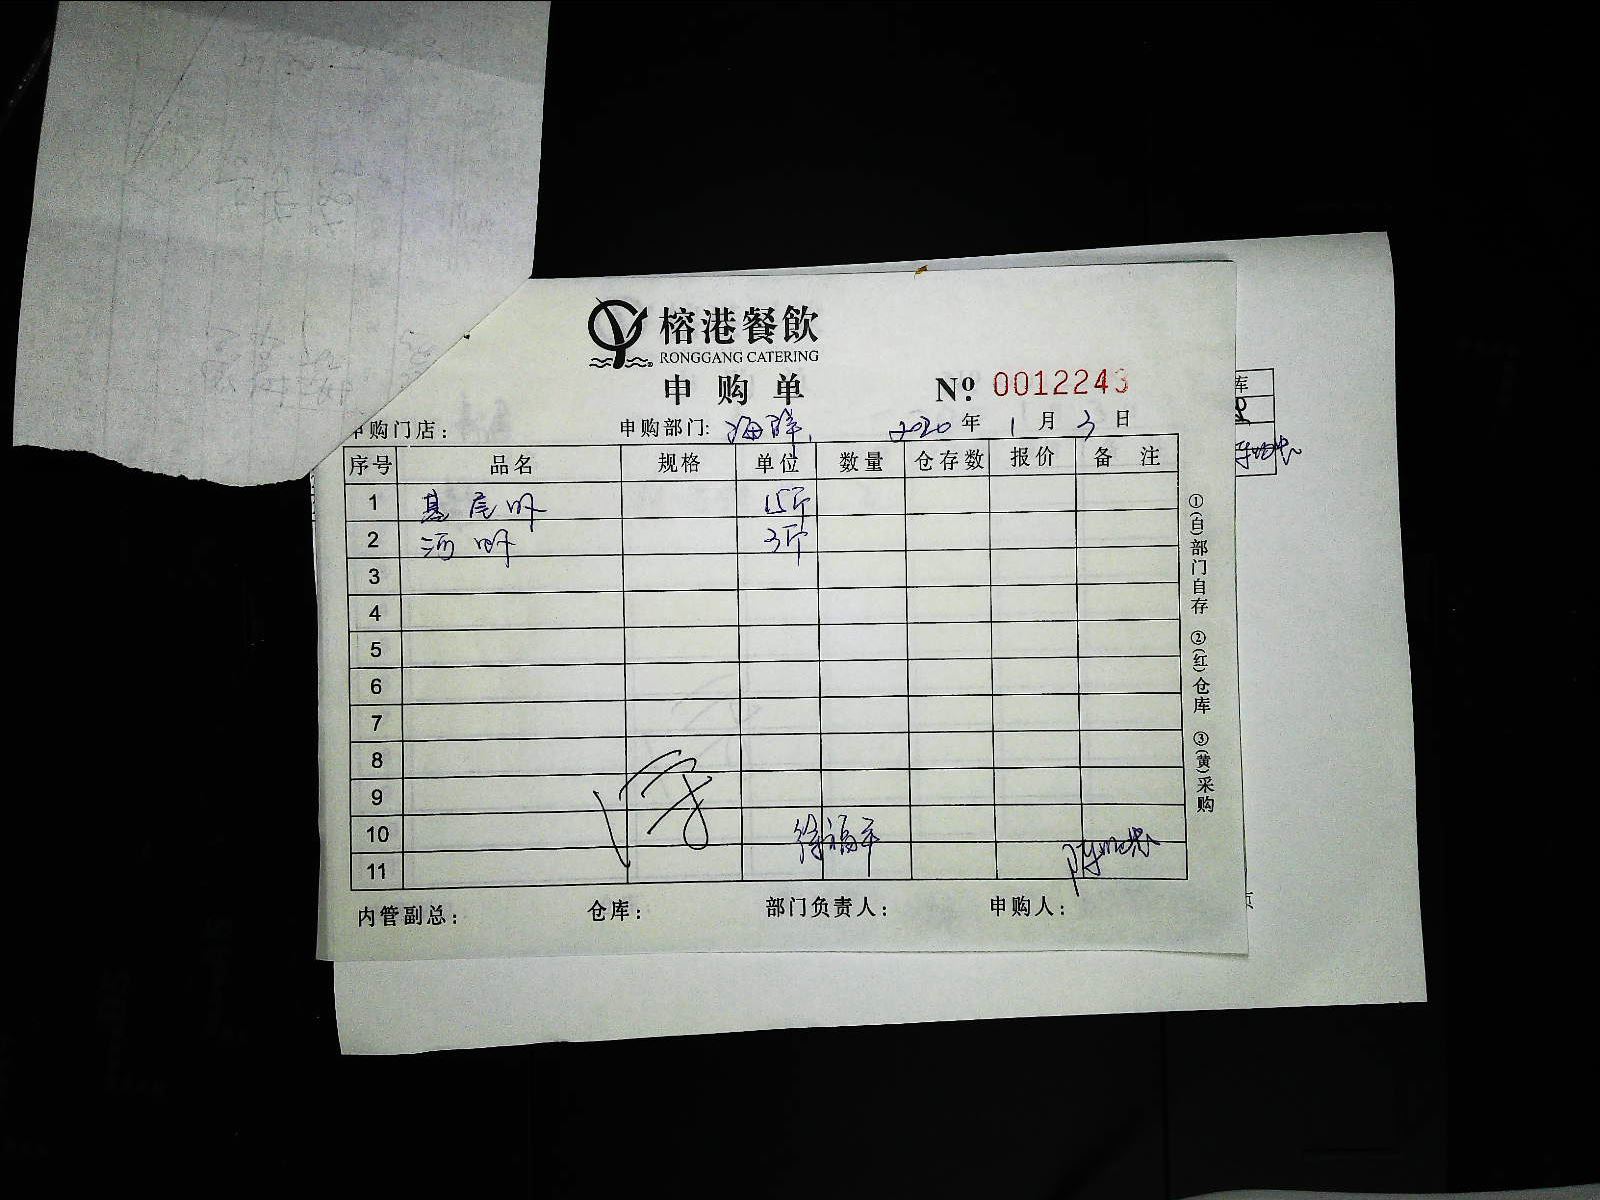 榕港餐飲
RONGGANG CATERING
申购单
№ 0012243
申购门店: 申购部门: 海鲜 2020年1月3日
序号 品名 规格 单位 数量 仓存数 报价 备注
1 基尾虾 15斤
2 河虾 3斤
3
4
5
6
7
8
9
10
11
徐福平
内管副总: 仓库: 部门负责人: 申购人:
①(白)部门自存 ②(红)仓库 ③(黄)采购
库